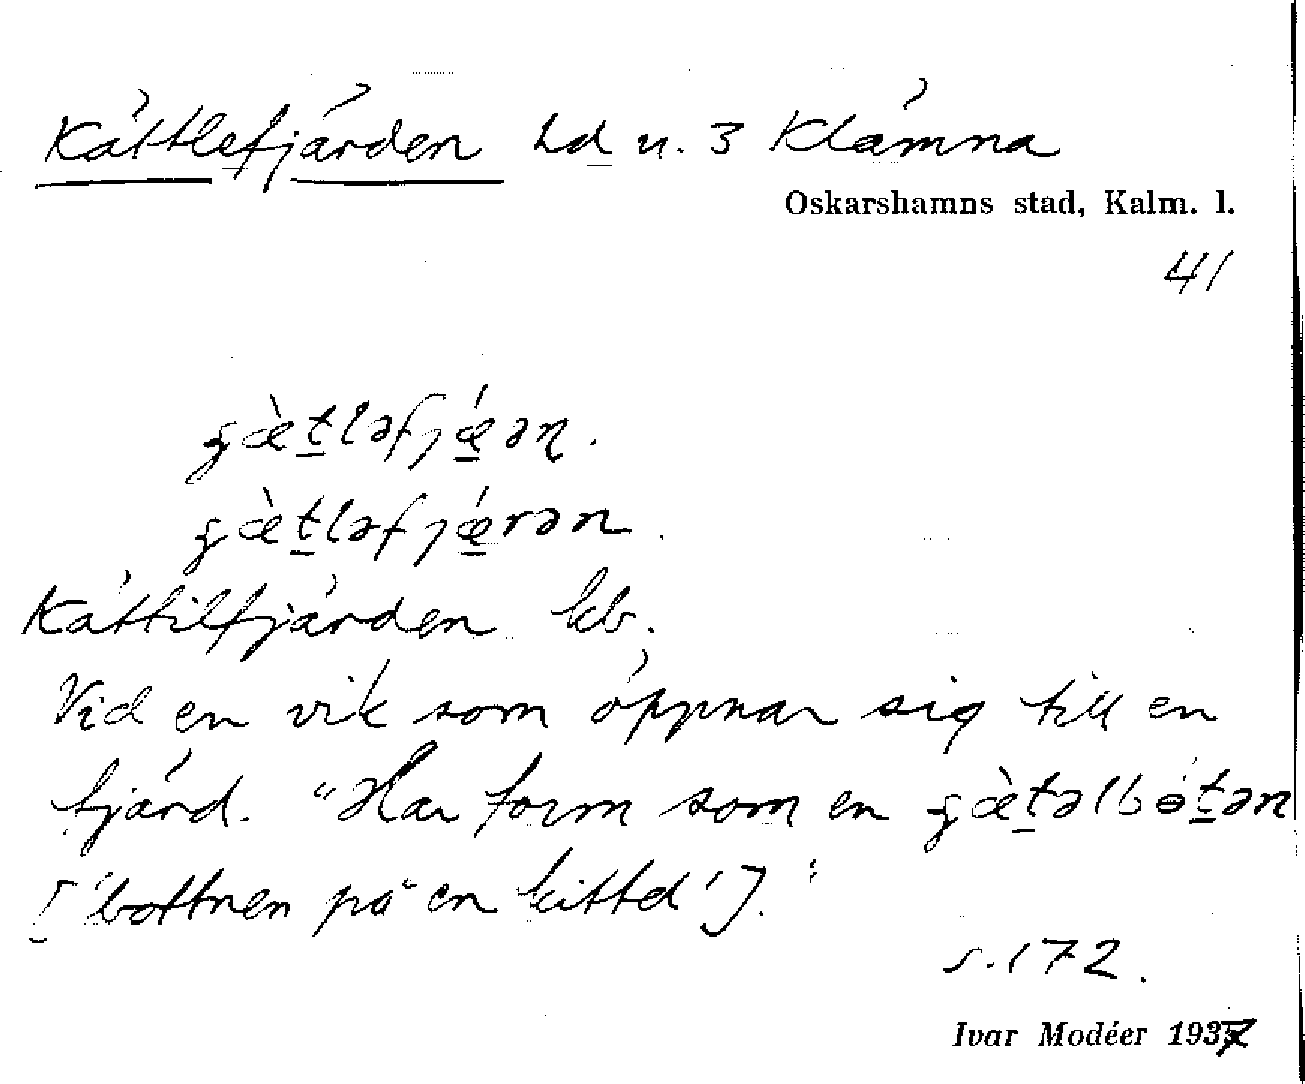 Kättlefjärden hd u. 3 Klämna
Oskarshamns stad, Kalm. l.
41
gæ̀t̲ləfjǽ̲ən.
gæ̀t̲ləfjǽ̲rən.
Kättilfjärden kb.
Vid en vik som öppnar sig till en
fjärd. "Har form som en gæ̀t̲əlbɵ́t̲ən
['bottnen på en kittel']."
s. 172.
Ivar Modéer 1937